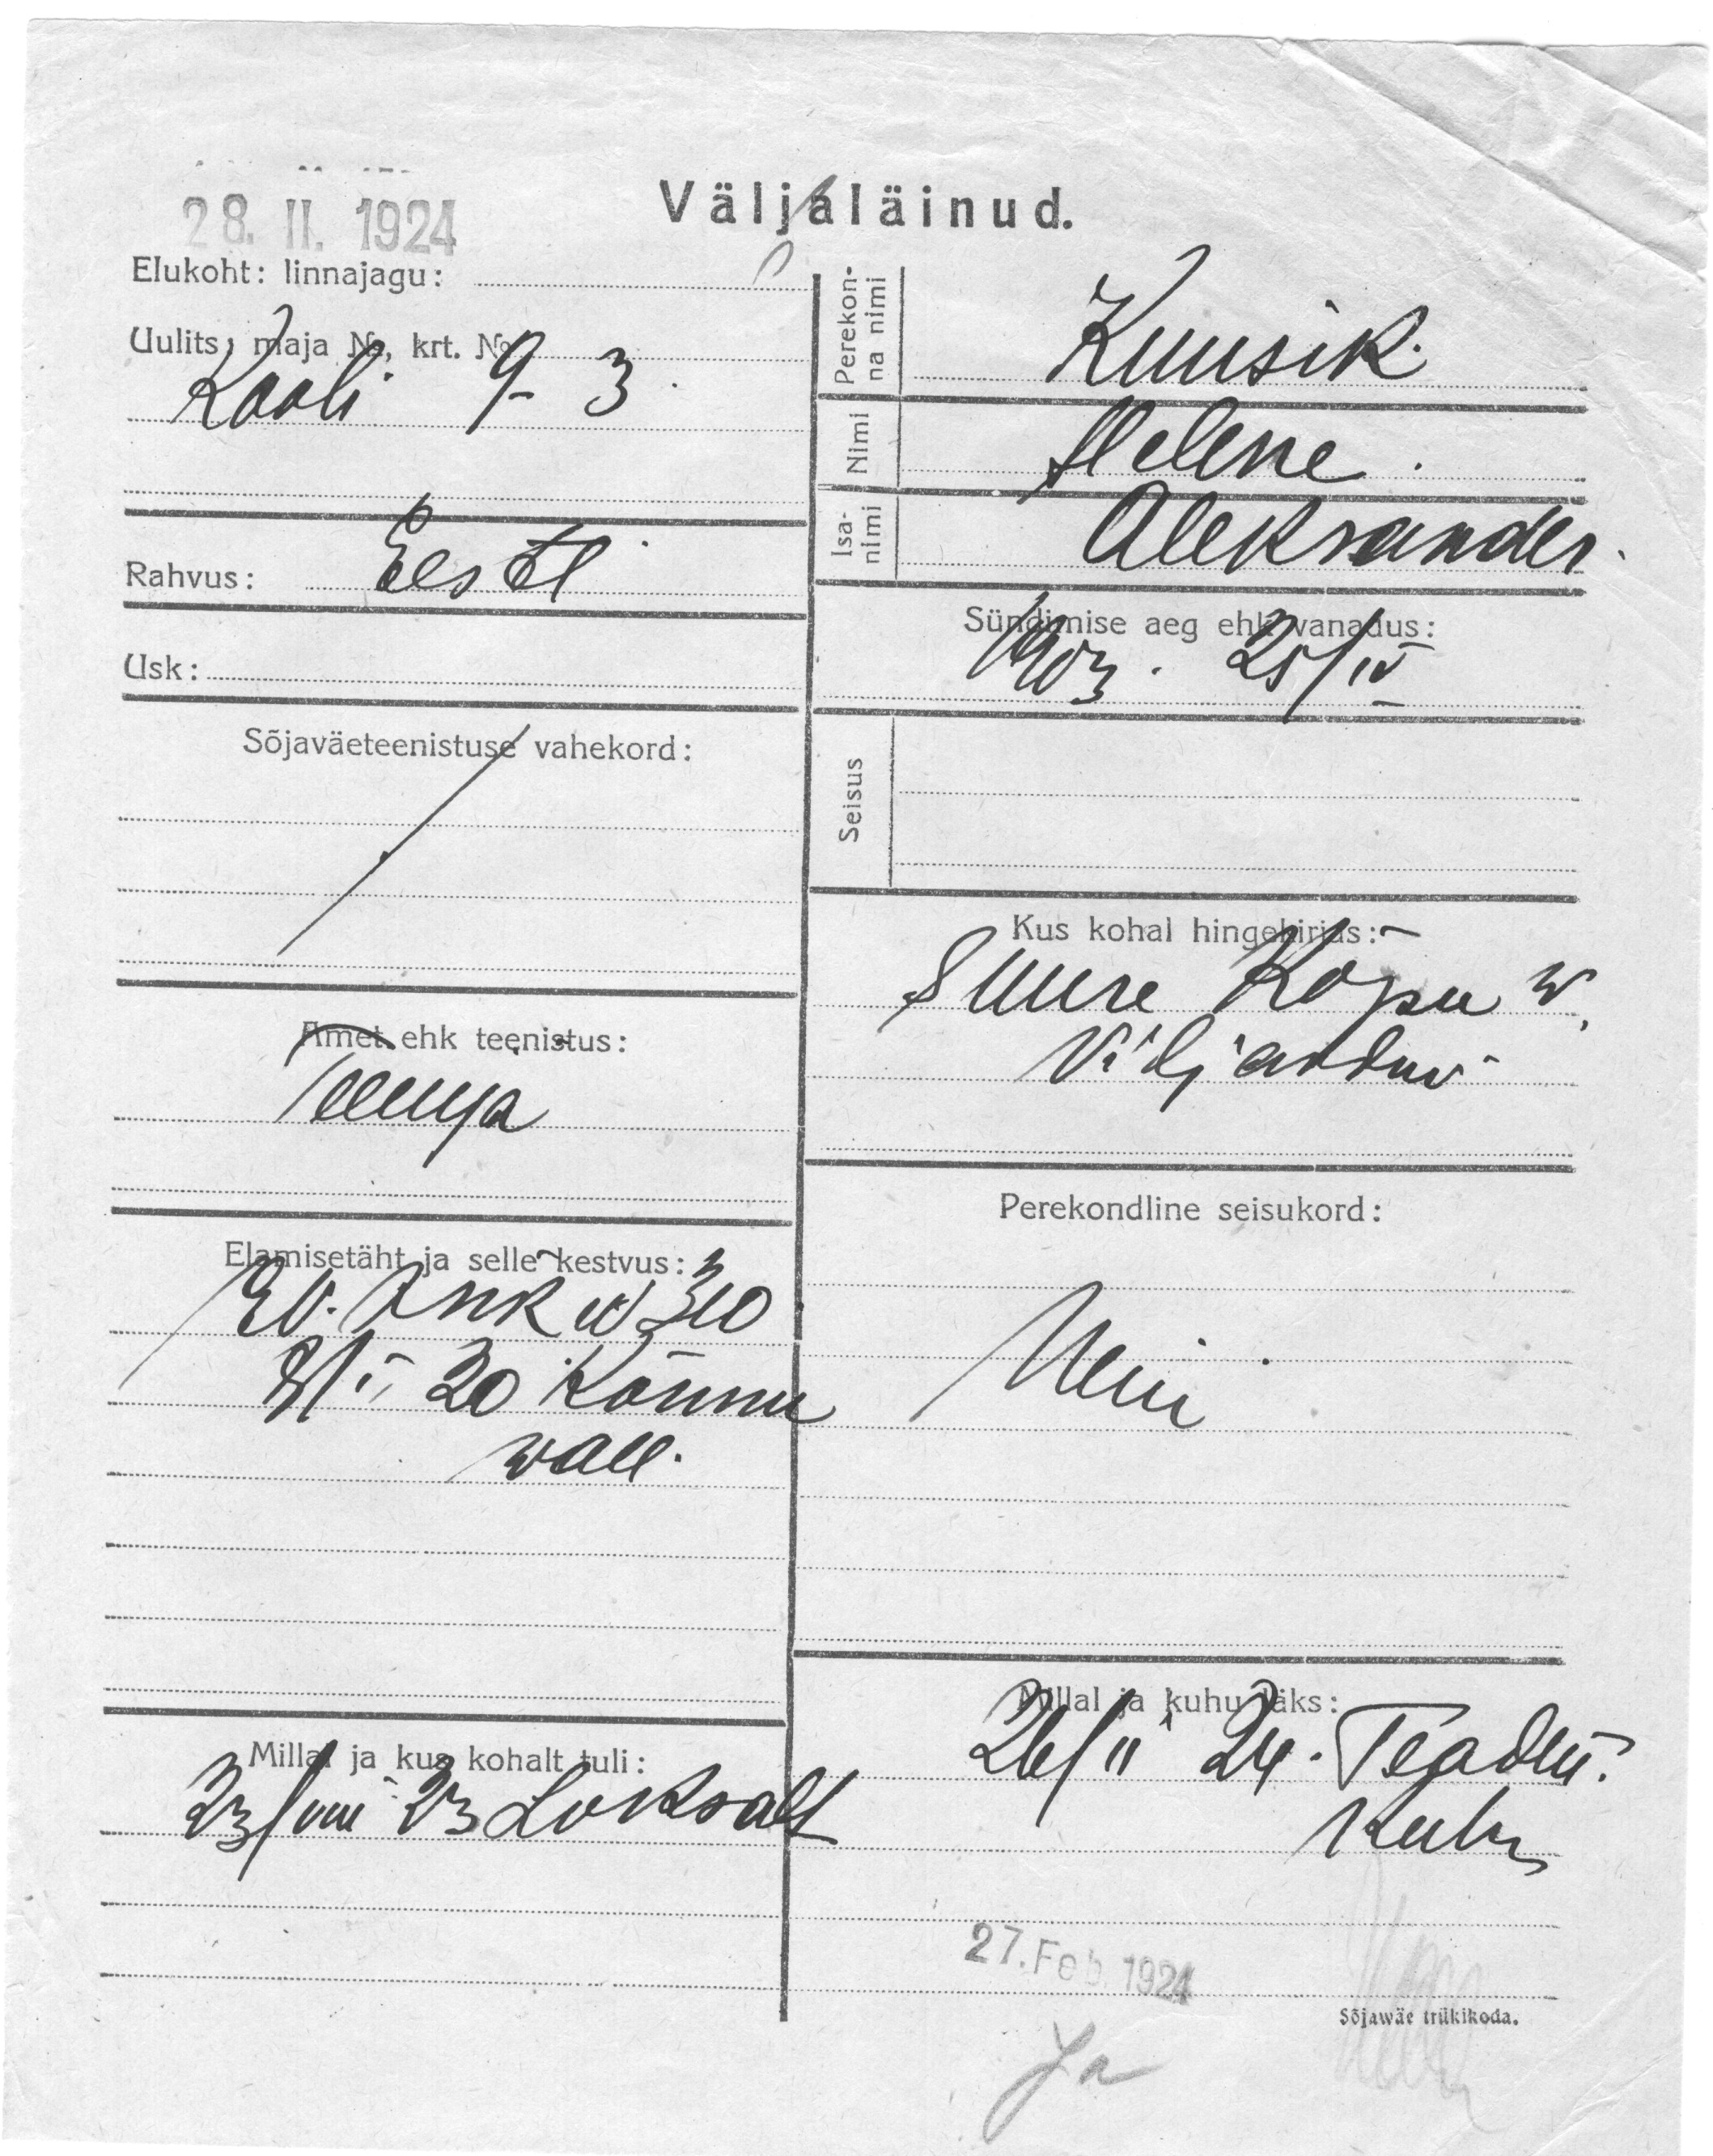 28. II. 1924
Väljaläinud.
Elukoht: linnajagu:
Uulits, maja №, krt. №
Kooli 9-3.
Rahvus: Eesti
Usk:
Sõjaväeteenistuse vahekord:
Amet ehk teenistus:
Teenija
Elamisetäht ja selle kestvus:
310
20 Kõnnu
wall.
Millal ja kus kohalt tuli:
23/VIII 23 Loksalt
Perekon-
na nimi
Kuusik.
Nimi
Helene.
Isa-
nimi
Aleksander.
Sündimise aeg ehk vanadus:
1903. 25/IV
Seisus
Kus kohal hingekirjas:
Suure Kõpu w.
Viljandim
Perekondline seisukord:
Millal ja kuhu läks:
26/II 24. Teadm.
kuhu
27. Feb. 1924
Sõjawäe trükikoda.
Ja